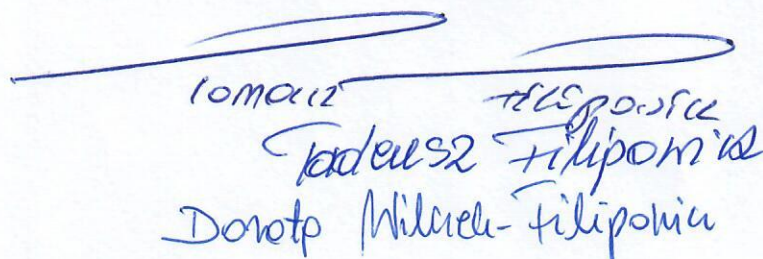 Tomasz Filipowicz
Tadeusz Filipowicz
Dorota Wilczek-Filipowicz